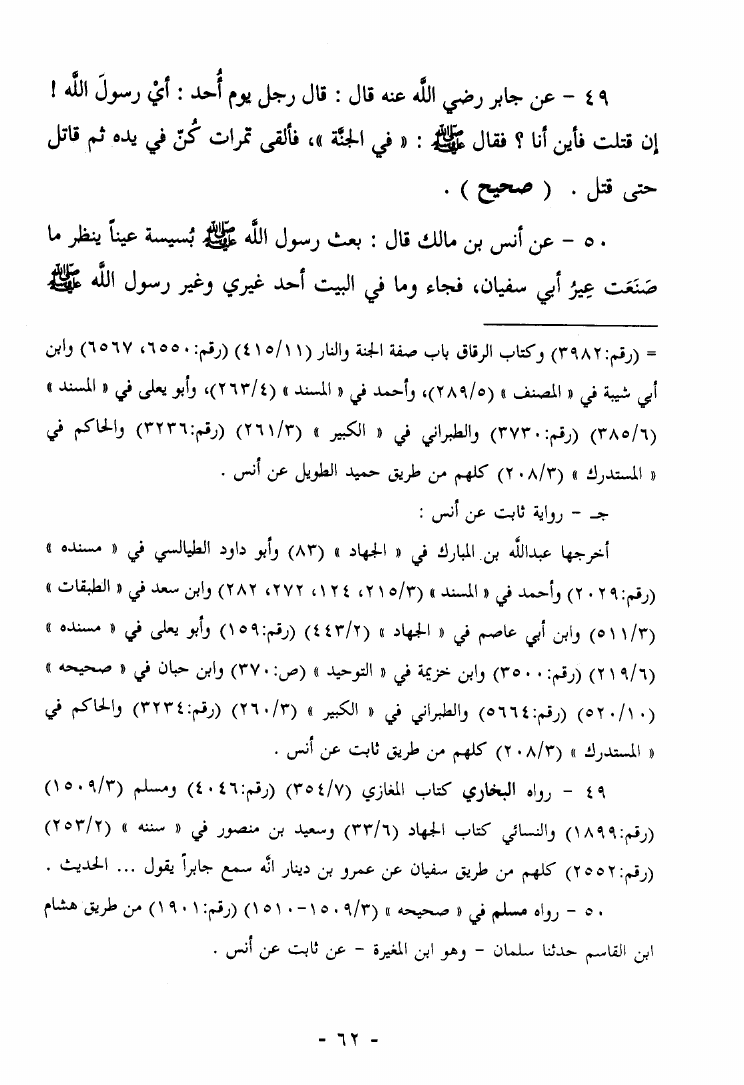 ٤٩ - عن جابر رضي اللَّه عنه قال : قال رجل يوم أُحد : أيْ رسولَ اللَّه !
إن قتلت فأين أنا ؟ فقال ﷺ : « في الجنَّة »، فألقى تمرات كُنّ في يده ثم قاتل
حتى قتل . ( صحيح ) .
٥٠ - عن أنس بن مالك قال : بعث رسول اللَّه ﷺ بُسيسة عيناً ينظر ما
صَنَعَت عِيرُ أبي سفيان، فجاء وما في البيت أحد غيري وغير رسول اللَّه ﷺ
= (رقم:٣٩٨٢) وكتاب الرقاق باب صفة الجنة والنار (٤١٥/١١) (رقم:٦٥٥٠، ٦٥٦٧) وابن
أبي شيبة في « المصنف » (٢٨٩/٥)، وأحمد في « المسند » (٢٦٣/٤)، وأبو يعلى في « المسند »
(٣٨٥/٦) (رقم:٣٧٣٠) والطبراني في « الكبير » (٢٦١/٣) (رقم:٣٢٣٦) والحاكم في
« المستدرك » (٢٠٨/٣) كلهم من طريق حميد الطويل عن أنس .
جـ - رواية ثابت عن أنس :
أخرجها عبداللَّه بن المبارك في « الجهاد » (٨٣) وأبو داود الطيالسي في « مسنده »
(رقم:٢٠٢٩) وأحمد في « المسند » (٢١٥/٣، ١٢٤، ٢٧٢، ٢٨٢) وابن سعد في « الطبقات »
(٥١١/٣) وابن أبي عاصم في « الجهاد » (٤٤٣/٢) (رقم:١٥٩) وأبو يعلى في « مسنده »
(٢١٩/٦) (رقم:٣٥٠٠) وابن خزيمة في « التوحيد » (ص:٣٧٠) وابن حبان في « صحيحه »
(٥٢٠/١٠) (رقم:٥٦٦٤) والطبراني في « الكبير » (٢٦٠/٣) (رقم:٣٢٣٤) والحاكم في
« المستدرك » (٢٠٨/٣) كلهم من طريق ثابت عن أنس .
٤٩ - رواه البخاري كتاب المغازي (٣٥٤/٧) (رقم:٤٠٤٦) ومسلم (١٥٠٩/٣)
(رقم:١٨٩٩) والنسائي كتاب الجهاد (٣٣/٦) وسعيد بن منصور في « سننه » (٢٥٣/٢)
(رقم:٢٥٥٢) كلهم من طريق سفيان عن عمرو بن دينار انَّه سمع جابراً يقول ... الحديث .
٥٠ - رواه مسلم في « صحيحه » (١٥٠٩/٣-١٥١٠) (رقم:١٩٠١) من طريق هشام
ابن القاسم حدثنا سلمان - وهو ابن المغيرة - عن ثابت عن أنس .
- ٦٢ -